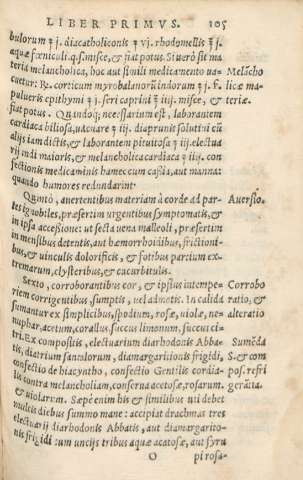 LIBER PRIMVS. 105
bulorum ʒ j. diacatholiconis ʒ vj. rhodomellis ℥ j.
aquæ fœniculi q. s. misce, & fiat potus. Si uerò sit ma
teria melancholica, hoc aut simili medicamento ua- Melãcho
cuetur: ℞. corticum myrobalanorũ indorum ʒ j. f. licæ ma-
pulueris epithymi ʒ j. seri caprini ℥ iiij. misce, & teriæ.
fiat potus. Quandoq; necessarium est, laborantem
cardiaca biliosa, uacuare ʒ iij. diaprunis solutiui cũ
alijs iam dictis, & laborantem pituitosa ʒ iij. electua
rij indi maioris, & melancholica cardiaca ʒ iij. con
fectionis medicaminis hamec cum cassia, aut manna:
quando humores redundarint.
Quintò, auertentibus materiam à corde ad par- Auersio.
tes ignobiles, præsertim urgentibus symptomatis, &
in ipsa accessione: ut secta uena malleoli, præsertim
in mensibus detentis, aut hæmorrhoidibus, frictioni-
bus, & uinculis dolorificis, & fotibus partium ex-
tremarum, clysteribus, & cucurbitulis.
Sexto, corroborantibus cor, & ipsius intempe- Corrobo
riem corrigentibus, sumptis, uel admotis. In calida ratio, &
sumantur ex simplicibus, spodium, rosæ, uiolæ, ne- alteratio
nuphar, acetum, corallus, succus limonum, succus ci-
tri. Ex compositis, electuarium diarhodonis Abba- Sumẽda
tis, diatrium santalorum, diamargaritionis frigidi, S. & com
confectio de hiacyntho, confectio Gentilis cordia- pos. refri
lis contra melancholiam, conserua acetosæ, rosarum. gerãta.
& uiolarum. Sæpè enim his & similibus uti debet
multis diebus summo mane: accipiat drachmas tres
electuarij diarhodonis Abbatis, aut diamargarito-
nis frigidi: cum uncijs tribus aquæ acatosæ, aut syru
O pi rosa-